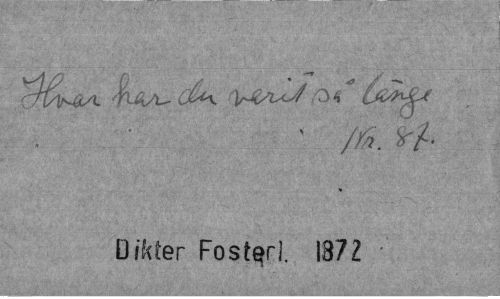 Hvar har du varit så länge
Nr. 87.
Dikter Fosterl. 1872